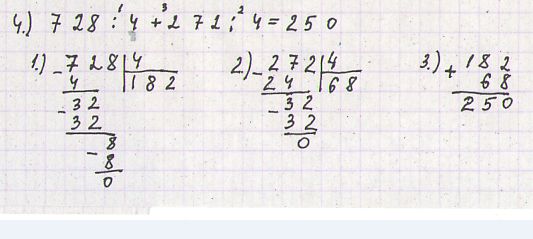 4.) 7 2 8 :¹ 4 +³ 2 7 2 :² 4 = 2 5 0
1.) - 7 2 8 | 4
4 | 1 8 2
- 3 2
3 2
- 8
8
0
2.) - 2 7 2 | 4
2 4 | 6 8
- 3 2
3 2
0
3.) + 1 8 2
6 8
2 5 0